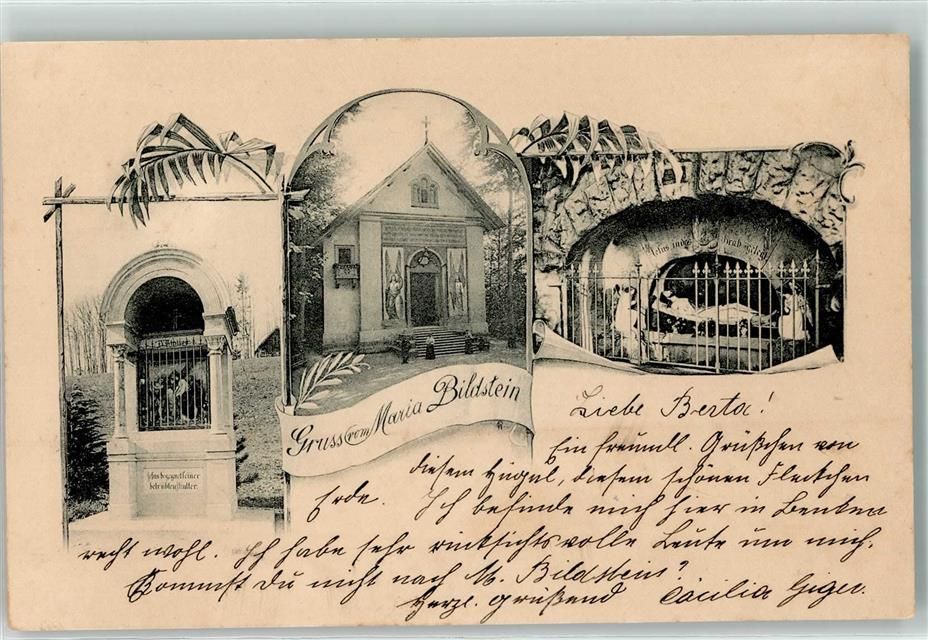 Jesus begegnet seiner
betrübten Mutter.
Jesus in das Grab gelegt
Gruss vom Maria Bildstein
Liebe Berta!
Ein freundl. Grüßchen von
diesem Hügel, diesem schönen Fleckchen
Erde. Ich befinde mich hier in Benken
recht wohl. Ich habe sehr rücksichtsvolle Leute um mich.
Kommst Du nicht nach M. Bildstein?
Herzl. grüßend Cäcilia Giger.